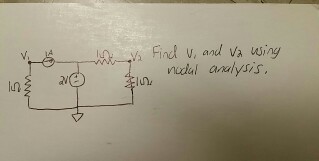 V₁ 1A 1Ω V₂ Find V₁ and V₂ using
nodal analysis.
1Ω 2V 1Ω